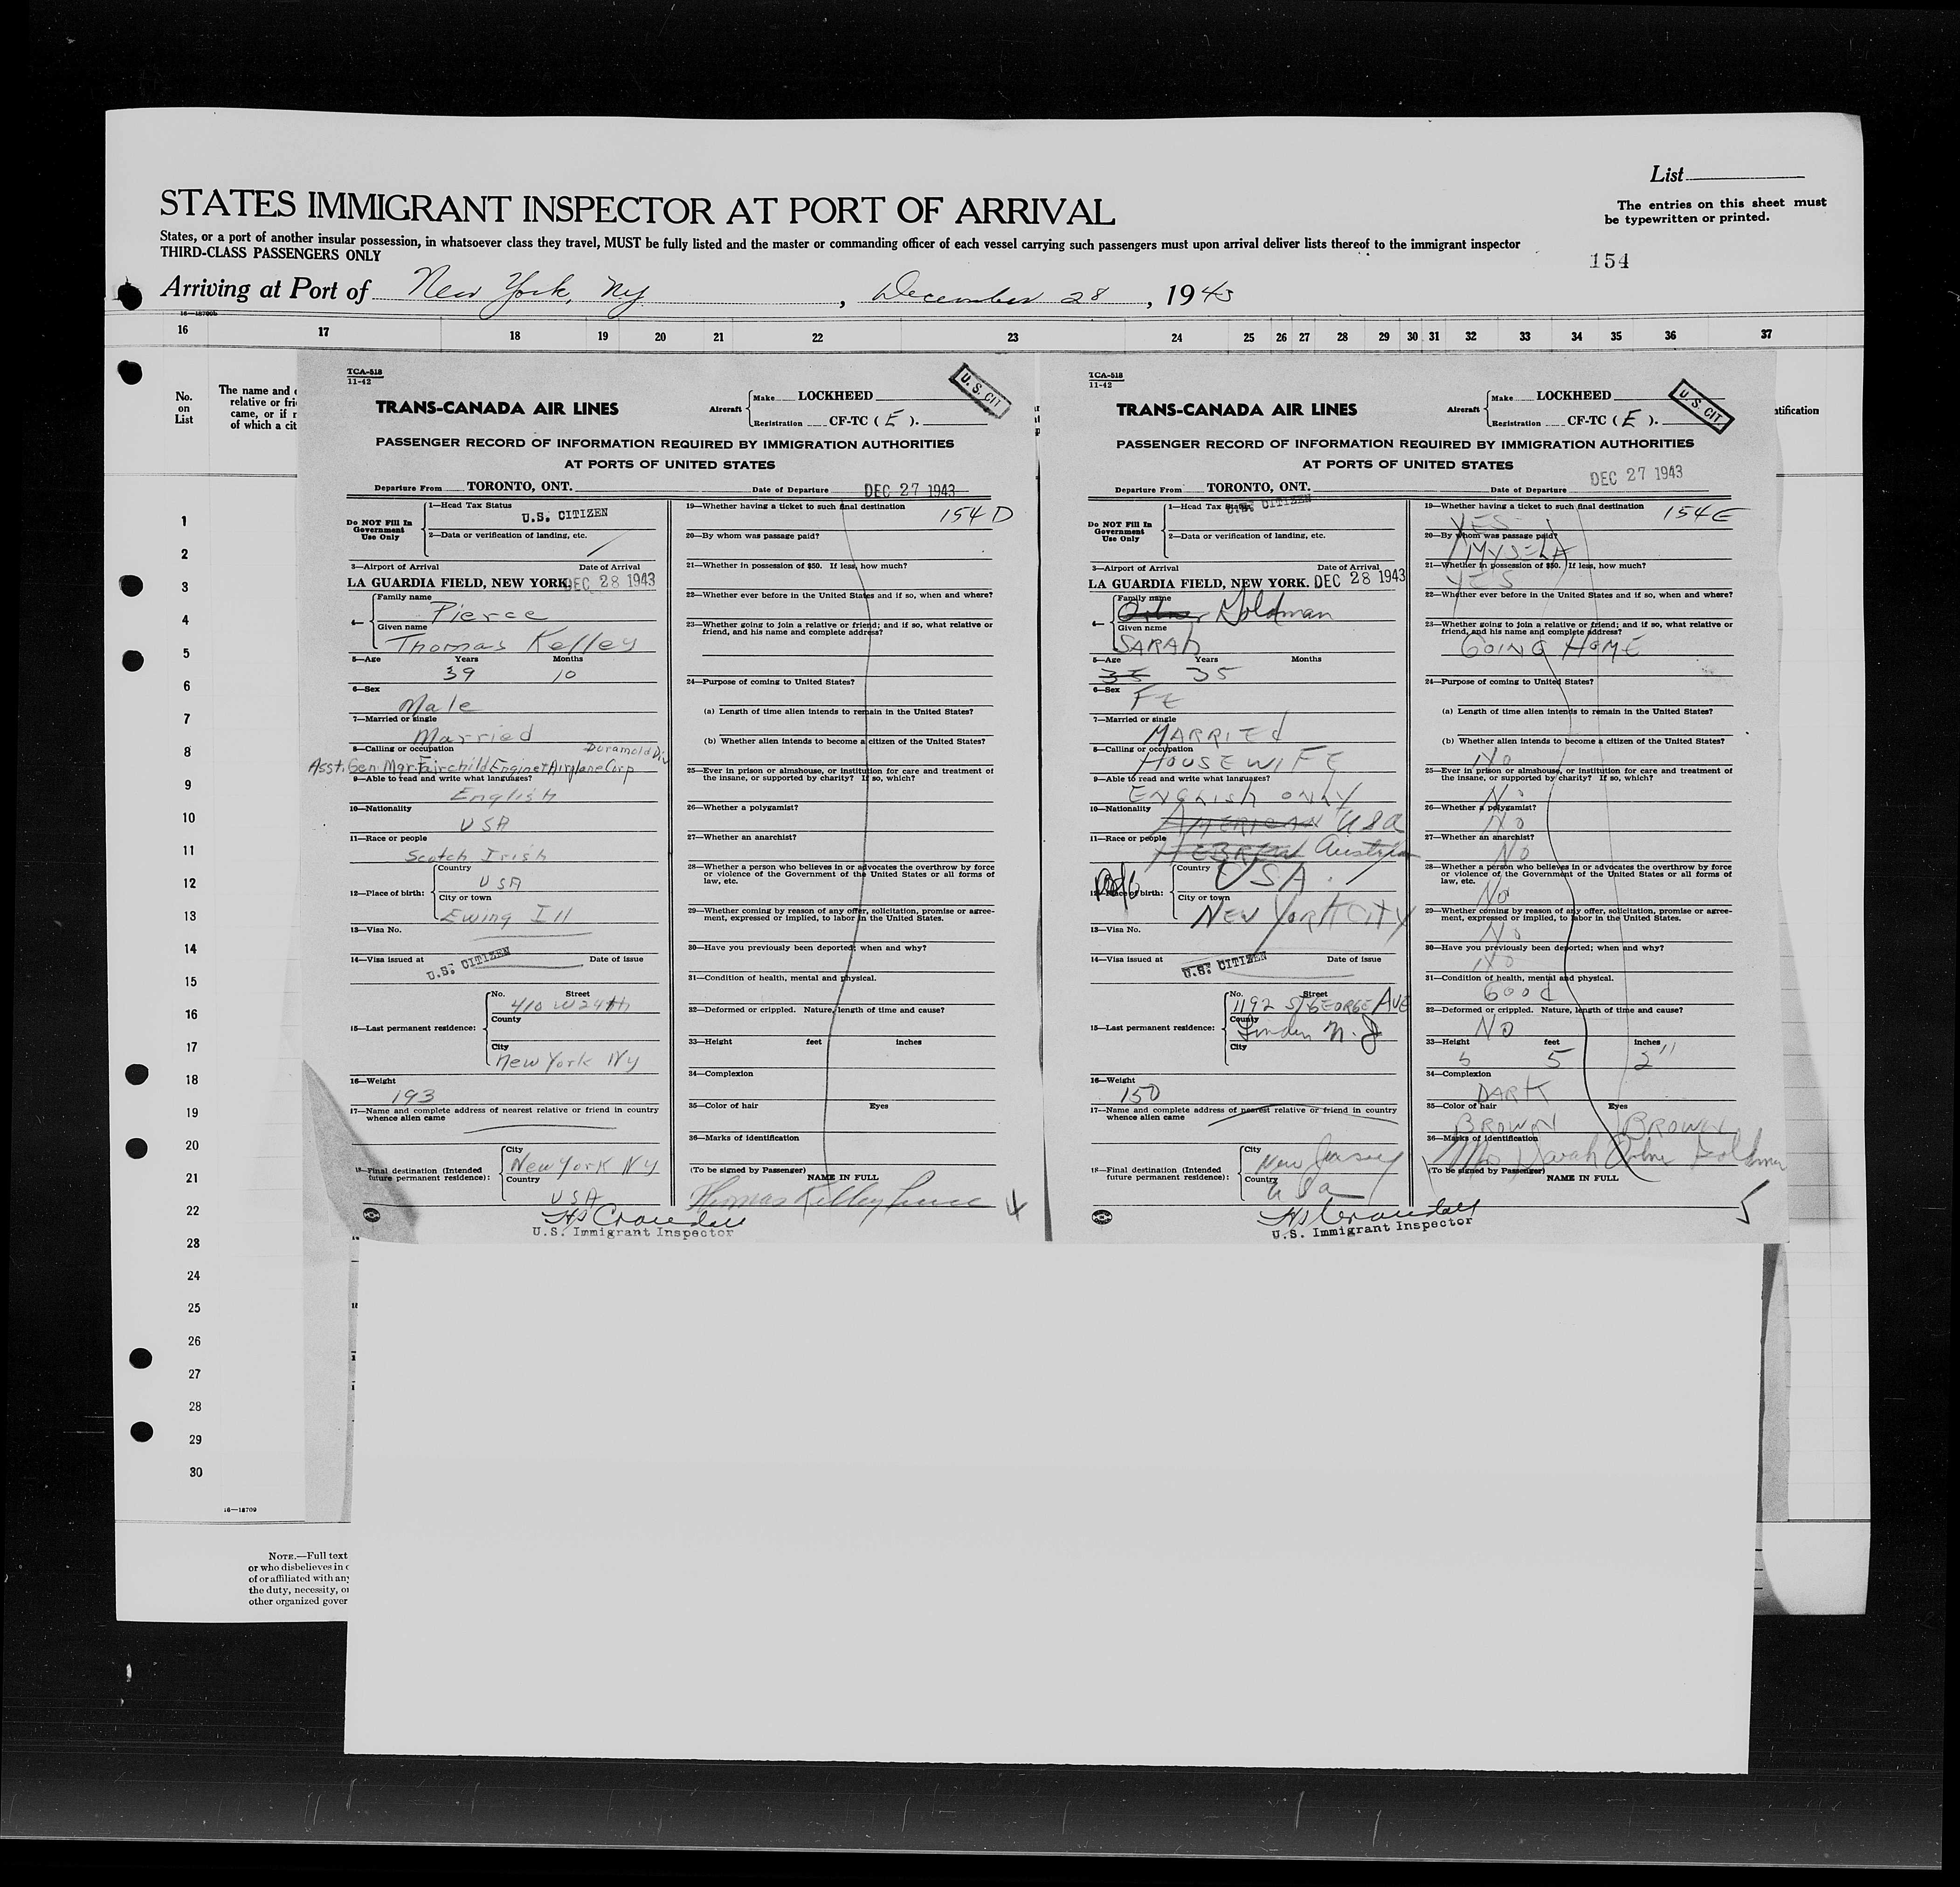 List
STATES IMMIGRANT INSPECTOR AT PORT OF ARRIVAL
The entries on this sheet must
be typewritten or printed.
States, or a port of another insular possession, in whatsoever class they travel, MUST be fully listed and the master or commanding officer of each vessel carrying such passengers must upon arrival deliver lists thereof to the immigrant inspector
THIRD-CLASS PASSENGERS ONLY
154
Arriving at Port of New York, NY, December 28, 1943
16 17 18 19 20 21 22 23 24 25 26 27 28 29 30 31 32 33 34 35 36 37
No.
on
List
The name and
relative or fri
came, or if r
of which a cit
ntification
1
2
3
4
5
6
7
8
9
10
11
12
13
14
15
16
17
18
19
20
21
22
23
24
25
26
27
28
29
30
16—18709
NOTE.—Full text
or who disbelieves in o
of or affiliated with any
the duty, necessity, or
other organized gover
TCA-518
11-42
U. S. CIT
TRANS-CANADA AIR LINES
Aircraft
Make LOCKHEED
Registration CF-TC ( E ).
PASSENGER RECORD OF INFORMATION REQUIRED BY IMMIGRATION AUTHORITIES
AT PORTS OF UNITED STATES
Departure From TORONTO, ONT. Date of Departure DEC 27 1943
Do NOT Fill In
Government
Use Only
1—Head Tax Status
U.S. CITIZEN
2—Data or verification of landing, etc.
3—Airport of Arrival Date of Arrival
LA GUARDIA FIELD, NEW YORK. DEC 28 1943
4—
Family name
Pierce
Given name
Thomas Kelley
5—Age Years Months
39 10
6—Sex
Male
7—Married or single
Married
8—Calling or occupation Duramold Div
Asst. Gen. Mgr. Fairchild Engine & Airplane Corp
9—Able to read and write what languages?
English
10—Nationality
USA
11—Race or people
Scotch Irish
12—Place of birth:
Country
USA
City or town
Ewing Ill
13—Visa No.
14—Visa issued at Date of issue
U.S. CITIZEN
15—Last permanent residence:
No. Street
410 W 24th
County
City
New York NY
16—Weight
193
17—Name and complete address of nearest relative or friend in country
whence alien came
18—Final destination (Intended
future permanent residence):
City
New York NY
Country
USA
19—Whether having a ticket to such final destination
154 D
20—By whom was passage paid?
21—Whether in possession of $50. If less, how much?
22—Whether ever before in the United States and if so, when and where?
23—Whether going to join a relative or friend; and if so, what relative or
friend, and his name and complete address?
24—Purpose of coming to United States?
(a) Length of time alien intends to remain in the United States?
(b) Whether alien intends to become a citizen of the United States?
25—Ever in prison or almshouse, or institution for care and treatment of
the insane, or supported by charity? If so, which?
26—Whether a polygamist?
27—Whether an anarchist?
28—Whether a person who believes in or advocates the overthrow by force
or violence of the Government of the United States or all forms of
law, etc.
29—Whether coming by reason of any offer, solicitation, promise or agree-
ment, expressed or implied, to labor in the United States.
30—Have you previously been deported; when and why?
31—Condition of health, mental and physical.
32—Deformed or crippled. Nature, length of time and cause?
33—Height feet inches
34—Complexion
35—Color of hair Eyes
36—Marks of identification
(To be signed by Passenger)
NAME IN FULL
Thomas Kelley Pierce 4
HS Crandall
U.S. Immigrant Inspector
TCA-518
11-42
U. S. CIT
TRANS-CANADA AIR LINES
Aircraft
Make LOCKHEED
Registration CF-TC ( E ).
PASSENGER RECORD OF INFORMATION REQUIRED BY IMMIGRATION AUTHORITIES
AT PORTS OF UNITED STATES
Departure From TORONTO, ONT. Date of Departure DEC 27 1943
Do NOT Fill In
Government
Use Only
1—Head Tax Status
U.S. CITIZEN
2—Data or verification of landing, etc.
3—Airport of Arrival Date of Arrival
LA GUARDIA FIELD, NEW YORK. DEC 28 1943
4—
Family name
Goldman
Given name
SARAH
5—Age Years Months
35 35
6—Sex
FE
7—Married or single
MARRIEd
8—Calling or occupation
HOUSEWIFE
9—Able to read and write what languages?
ENGLISH ONLY
10—Nationality
AMERICAN USA
11—Race or people
HEBREW Austrian
12—Place of birth:
Country
USA.
City or town
NEW YORK CITY
13—Visa No.
14—Visa issued at Date of issue
U.S. CITIZEN
15—Last permanent residence:
No. Street
1192 St GEORGE AVE
County
Linden N. J
City
16—Weight
150
17—Name and complete address of nearest relative or friend in country
whence alien came
18—Final destination (Intended
future permanent residence):
City
New Jersey
Country
USA
19—Whether having a ticket to such final destination
YES 154E
20—By whom was passage paid?
MYSELF
21—Whether in possession of $50. If less, how much?
YES
22—Whether ever before in the United States and if so, when and where?
23—Whether going to join a relative or friend; and if so, what relative or
friend, and his name and complete address?
GOING HOME
24—Purpose of coming to United States?
(a) Length of time alien intends to remain in the United States?
(b) Whether alien intends to become a citizen of the United States?
No
25—Ever in prison or almshouse, or institution for care and treatment of
the insane, or supported by charity? If so, which?
No
26—Whether a polygamist?
No
27—Whether an anarchist?
No
28—Whether a person who believes in or advocates the overthrow by force
or violence of the Government of the United States or all forms of
law, etc.
No
29—Whether coming by reason of any offer, solicitation, promise or agree-
ment, expressed or implied, to labor in the United States.
No
30—Have you previously been deported; when and why?
No
31—Condition of health, mental and physical.
Good
32—Deformed or crippled. Nature, length of time and cause?
No
33—Height feet inches
5 5 2"
34—Complexion
DARK
35—Color of hair Eyes
BROWN BROWN
36—Marks of identification
Mrs Sarah Goldman
(To be signed by Passenger)
NAME IN FULL
5
HS Crandall
U.S. Immigrant Inspector